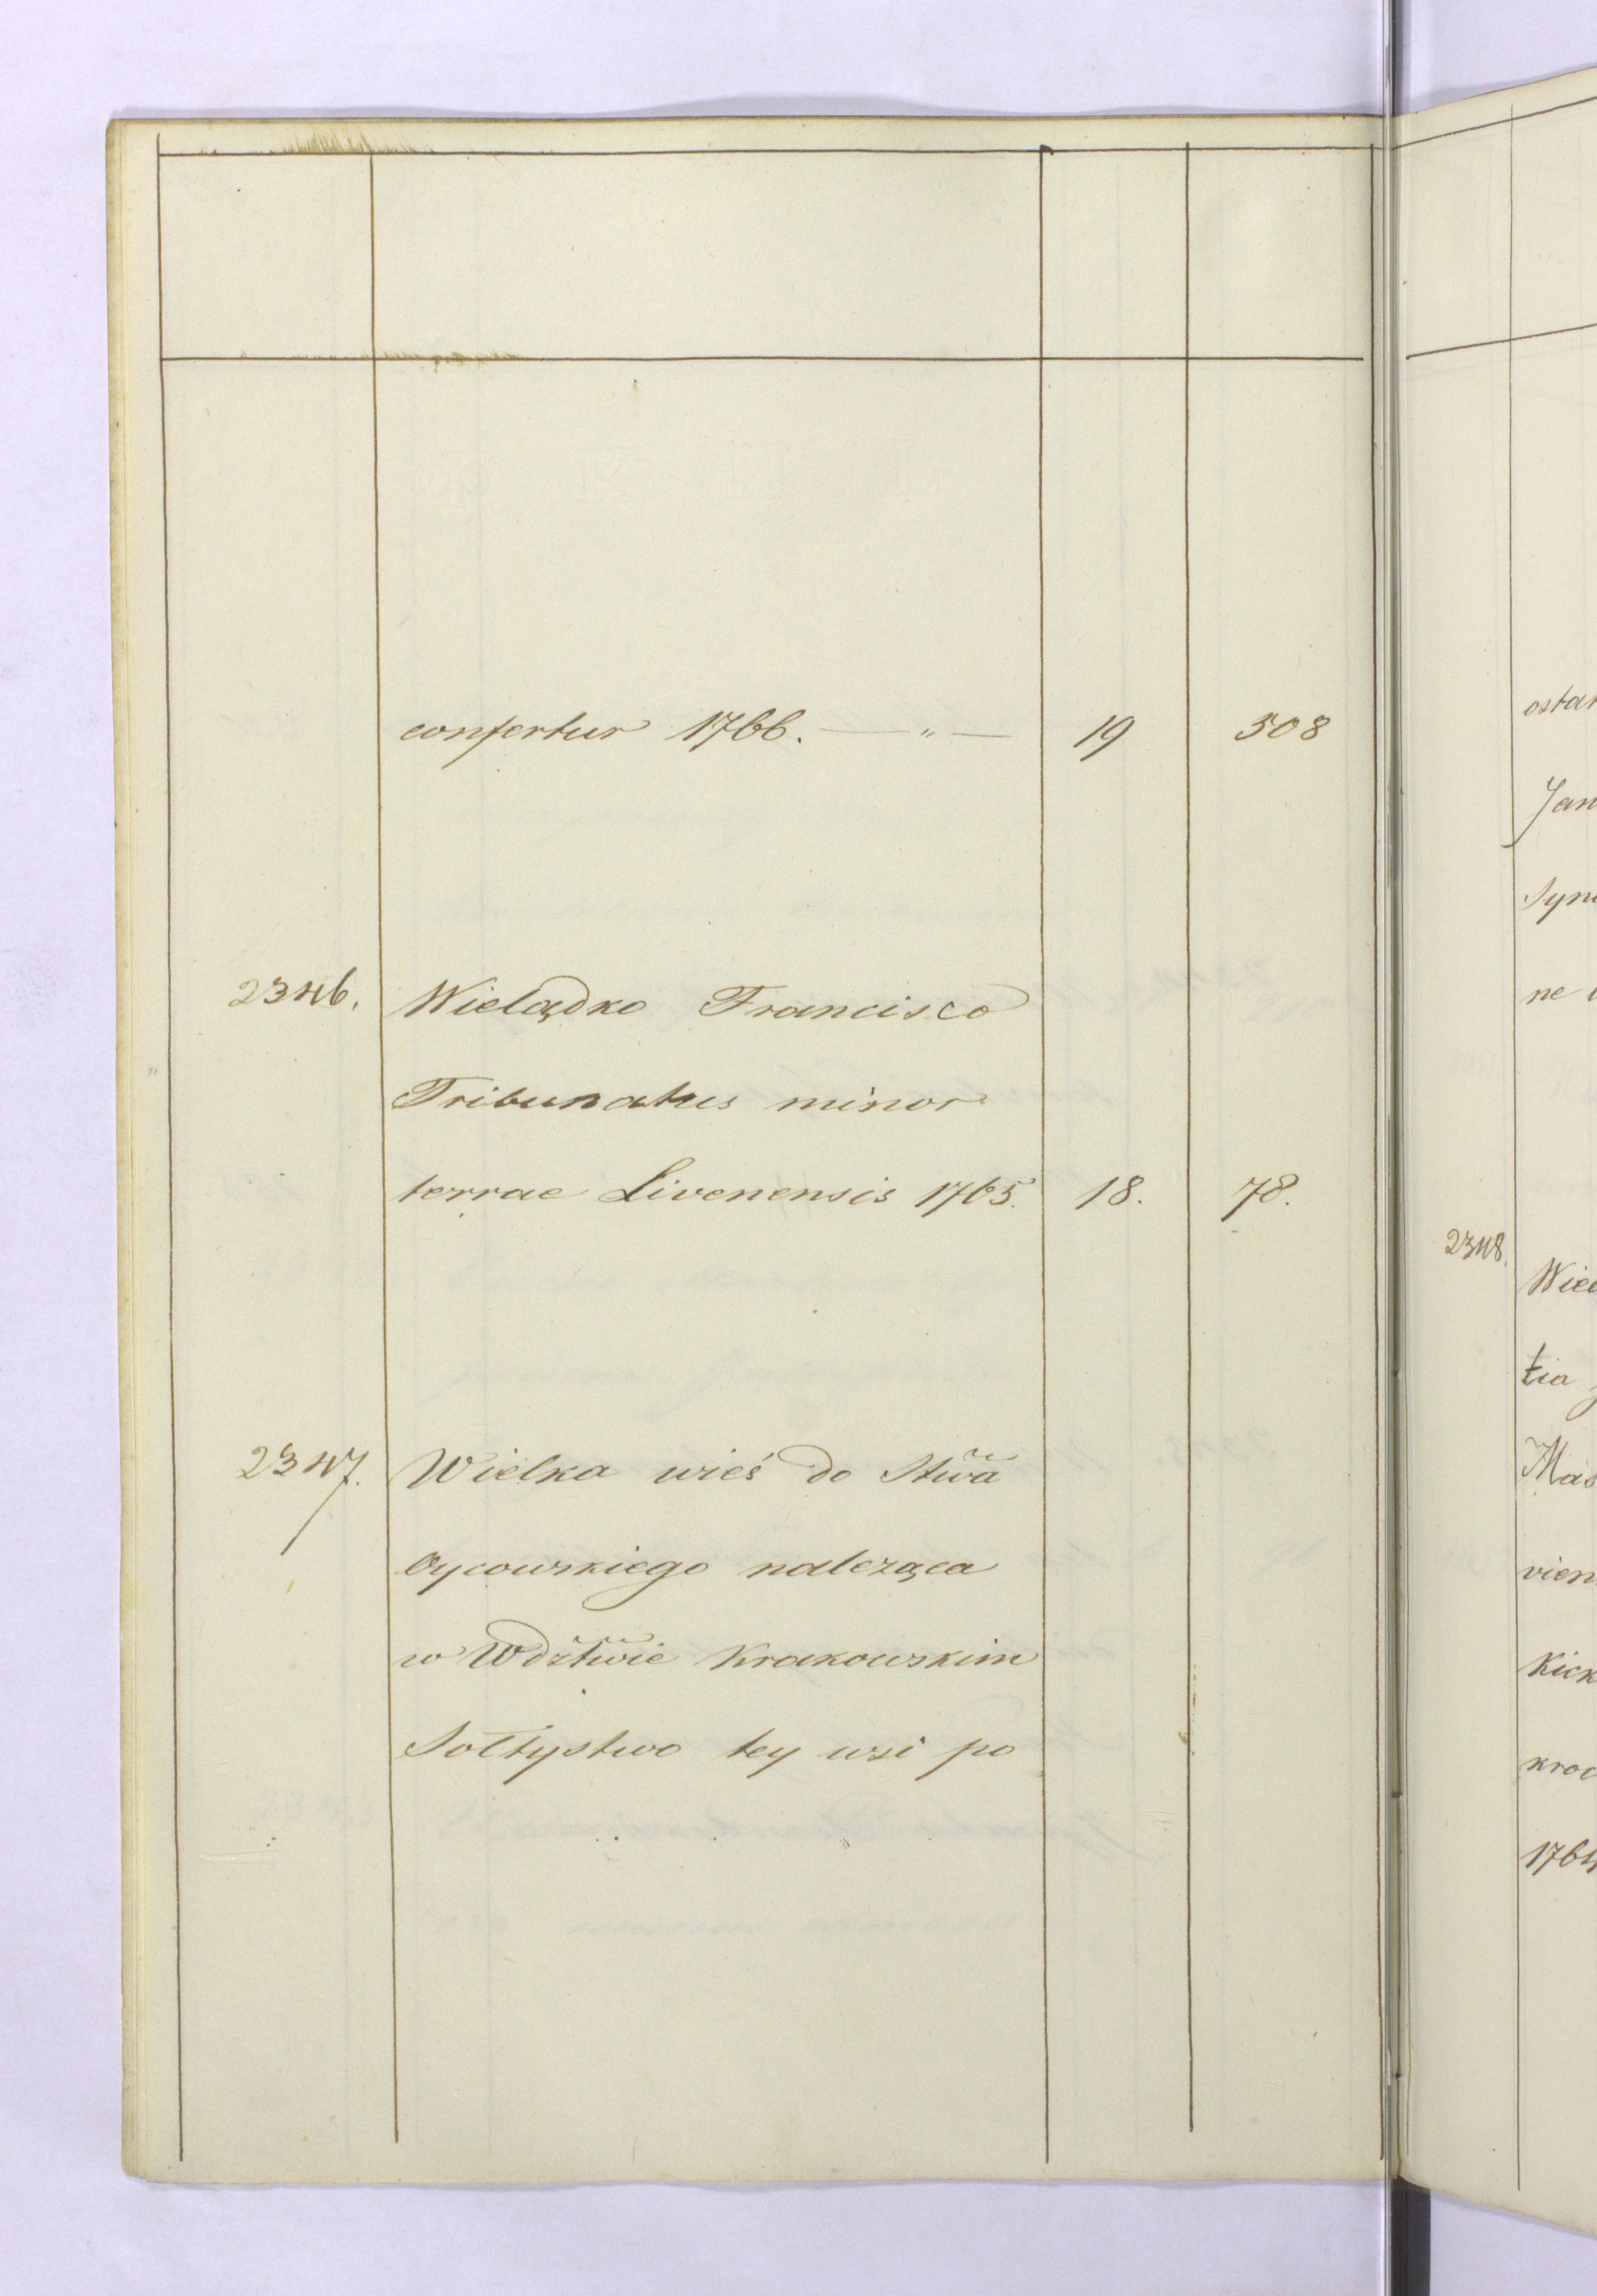 confertur 1766. — „ — 19 508
2346. Wielądko Francisco
Tribunatus minor
terrae Livenensis 1765. 18. 78.
2347. Wielka wieś do Stwa
Oycowskiego naleząca
w Wdztwie Krakowskim
Sołtystwo tey wsi po
ostat
Jan
Syn
ne
2348.
Wiel
tia
Mas
vien
Kick
kroc
1764